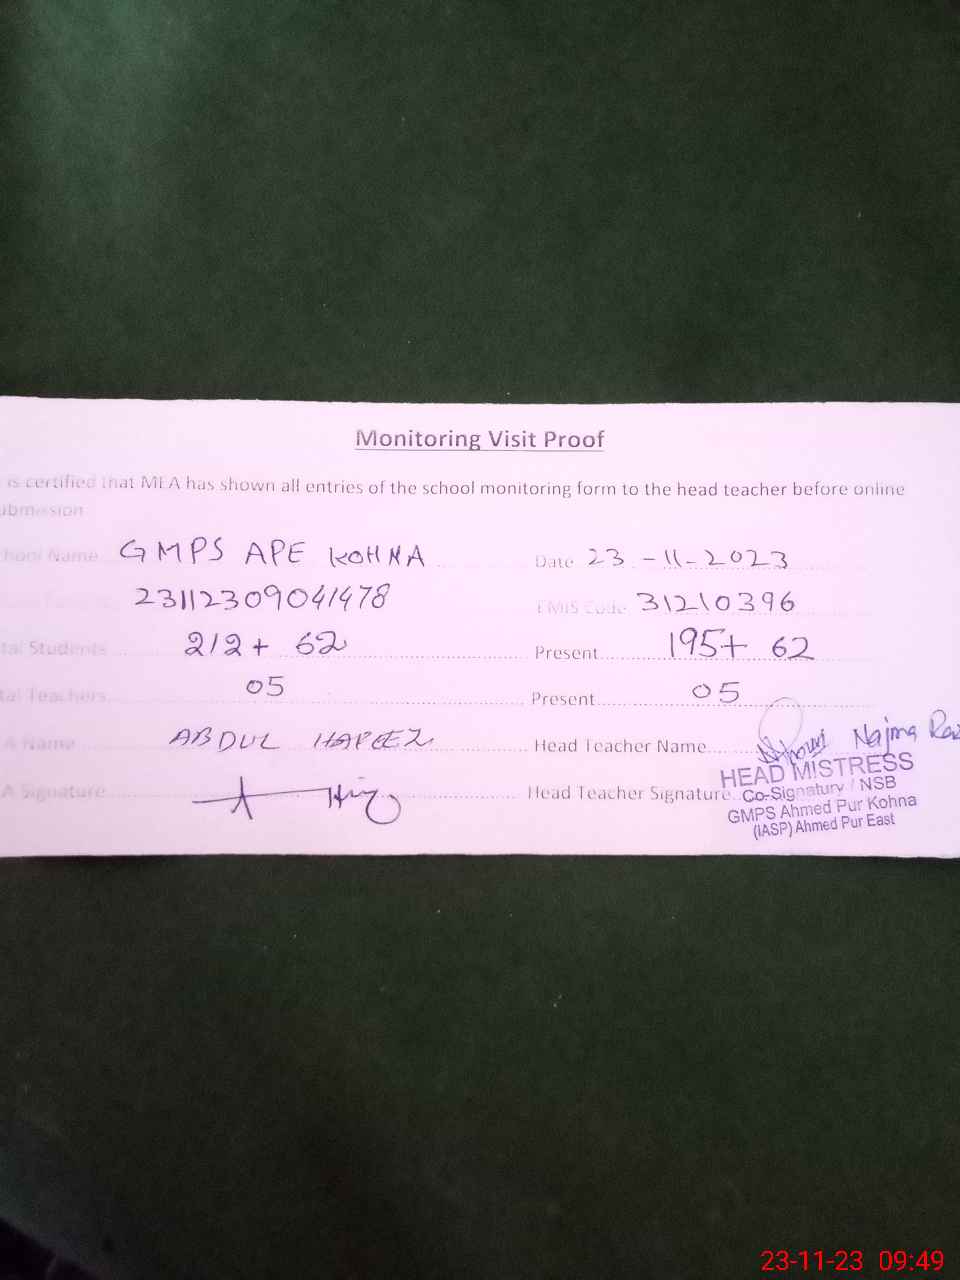 Monitoring Visit Proof
is certified that MEA has shown all entries of the school monitoring form to the head teacher before online
ubmission
chool Name GMPS APE KOHNA Date 23-11-2023
23112309041478 EMIS Code 31210396
tal Students 212+ 62 Present 195+ 62
tal Teachers 05 Present 05
A Name ABDUL HAFEEZ Head Teacher Name Najma
A Signature Head Teacher Signature
HEAD MISTRESS
Co-Signatury / NSB
GMPS Ahmed Pur Kohna
(IASP) Ahmed Pur East
23-11-23 09:49